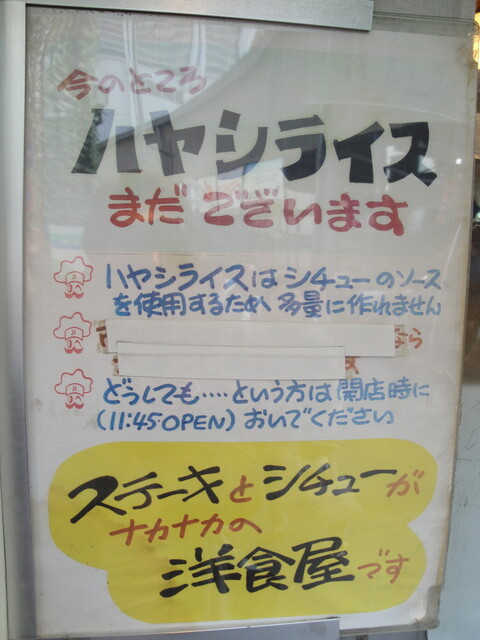 今のところ
ハヤシライス
まだございます
ハヤシライスはシチューのソース
を使用するため 多量に作れません
なら
どうしても‥‥という方は開店時に
(11:45OPEN)おいでください
ステーキとシチューが
ナカナカの
洋食屋です